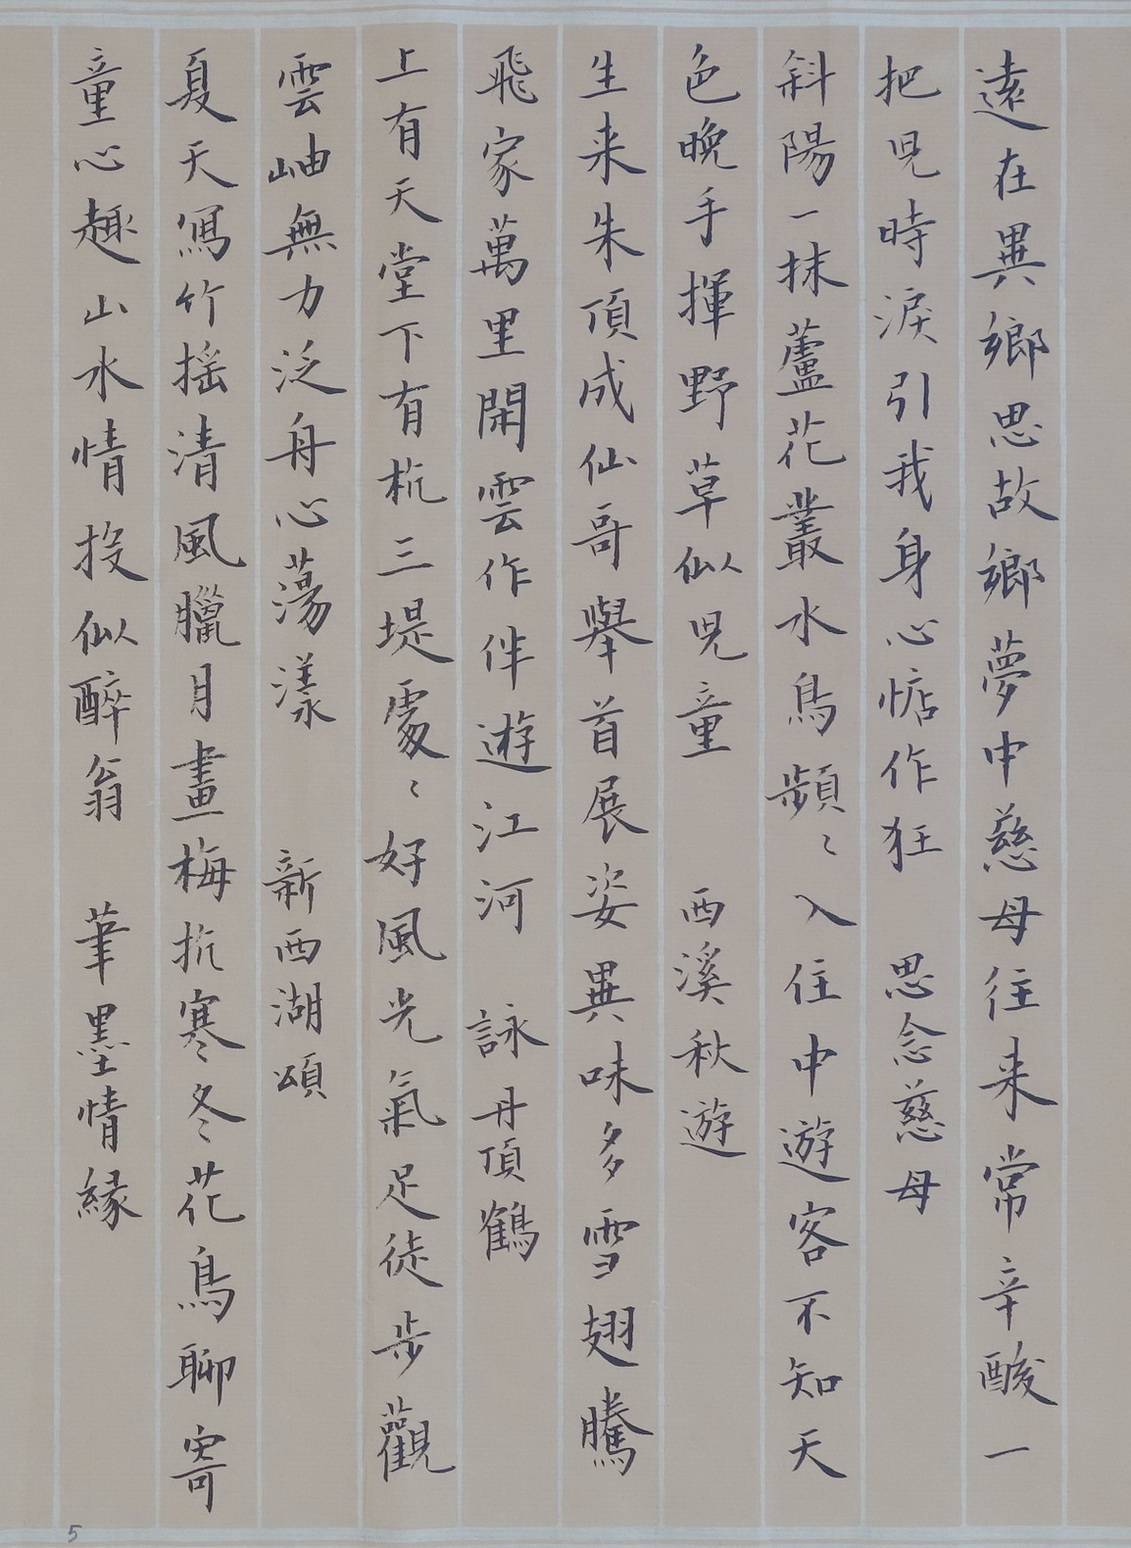 遠在異鄉思故鄉夢中慈母往来常辛酸一
把児時淚引我身心惦作狂 思念慈母
斜陽一抹蘆花叢水鳥頻〻入住中遊客不知天
色晚手揮野草似児童 西溪秋遊
生来朱頂成仙哥舉首展姿異味多雪翅騰
飛家萬里閑雲作伴遊江河 詠丹頂鶴
上有天堂下有杭三堤處〻好風光氣足徒步觀
雲岫無力泛舟心蕩漾 新西湖頌
夏天寫竹搖清風臘月畫梅抗寒冬花鳥聊寄
童心趣山水情投似醉翁 筆墨情緣
5